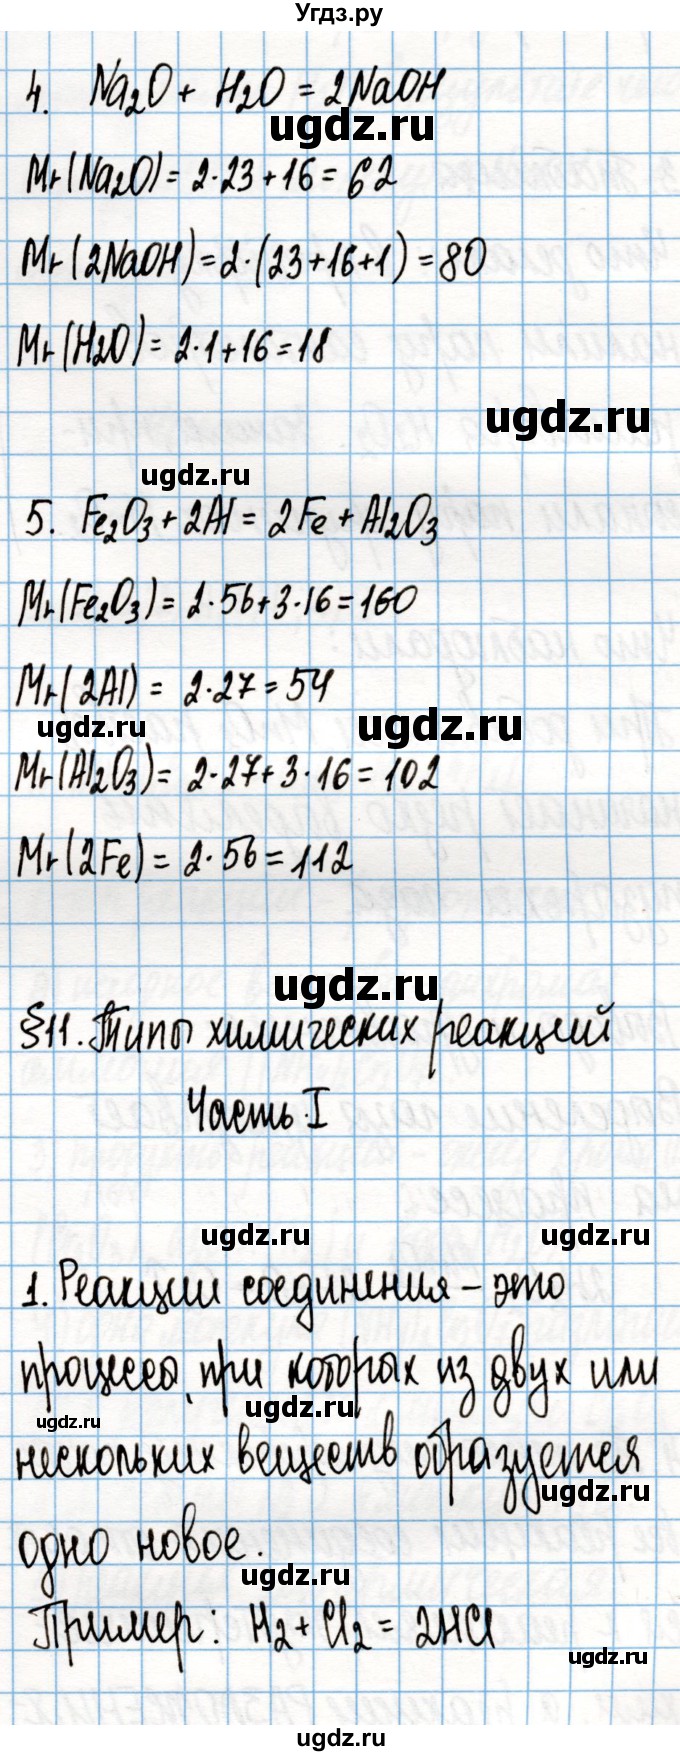 Угдз.ру
4. Na2O + H2O = 2NaOH
ugdz.ru
Mr(Na2O) = 2·23+16 = 62
Mr(2NaOH) = 2·(23+16+1) = 80
Mr(H2O) = 2·1+16 = 18
ugdz.ru
ugdz.ru
5. Fe2O3 + 2Al = 2Fe + Al2O3
Mr(Fe2O3) = 2·56+3·16 = 160
Mr(2Al) = 2·27 = 54
ugdz.ru ugdz.ru
Mr(Al2O3) = 2·27+3·16 = 102
Mr(2Fe) = 2·56 = 112
ugdz.ru
§11. Типы химических реакций
Часть I
ugdz.ru ugdz.ru
1. Реакции соединения – это
процессы, при которых из двух или
ugdz.ru ugdz.ru
нескольких веществ образуется
ugdz.ru
одно новое.
ugdz.ru
Пример: H2 + Cl2 = 2HCl
ugdz.ru
ugdz.ru